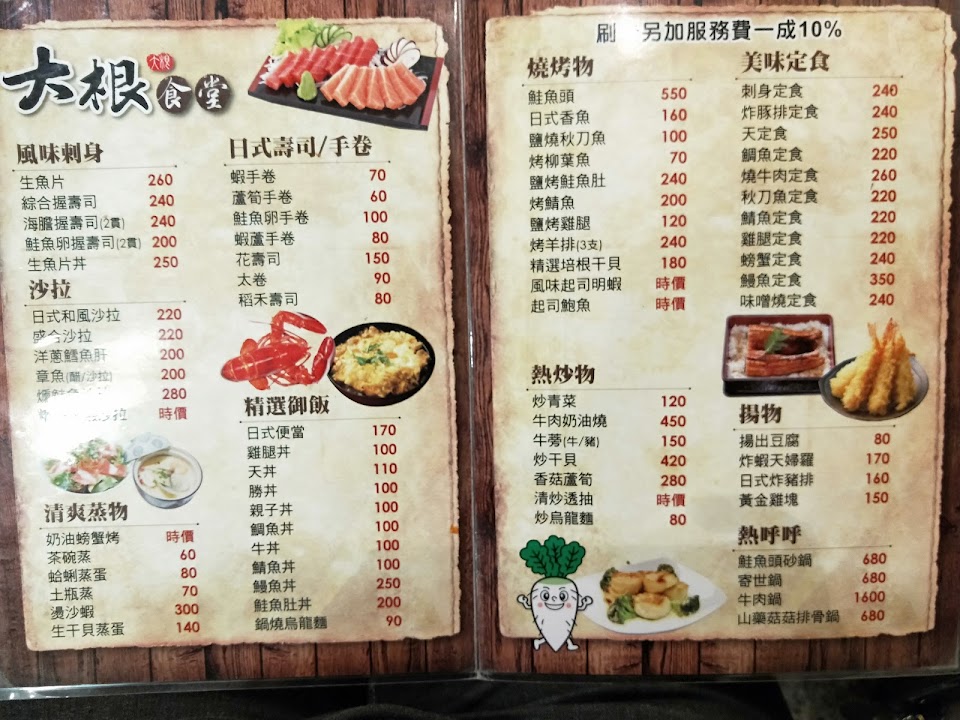 大根食堂
大根
風味刺身
生魚片 260
綜合握壽司 240
海膽握壽司(2貫) 240
鮭魚卵握壽司(2貫) 200
生魚片丼 250
沙拉
日式和風沙拉 220
盛合沙拉 220
洋蔥鱈魚肝 200
章魚(醋/沙拉) 200
燻鮭 280
沙拉 時價
清爽蒸物
奶油螃蟹烤 時價
茶碗蒸 60
蛤蜊蒸蛋 80
土瓶蒸 70
燙沙蝦 300
生干貝蒸蛋 140
日式壽司/手卷
蝦手卷 70
蘆筍手卷 60
鮭魚卵手卷 100
蝦蘆手卷 80
花壽司 150
太卷 90
稻禾壽司 80
精選御飯
日式便當 170
雞腿丼 100
天丼 110
勝丼 100
親子丼 100
鯛魚丼 100
牛丼 100
鯖魚丼 100
鰻魚丼 250
鮭魚肚丼 200
鍋燒烏龍麵 90
刷 另加服務費一成10%
燒烤物
鮭魚頭 550
日式香魚 160
鹽燒秋刀魚 100
烤柳葉魚 70
鹽烤鮭魚肚 240
烤鯖魚 200
鹽烤雞腿 120
烤羊排(3支) 240
精選培根干貝 180
風味起司明蝦 時價
起司鮑魚 時價
熱炒物
炒青菜 120
牛肉奶油燒 450
牛蒡(牛/豬) 150
炒干貝 420
香菇蘆筍 280
清炒透抽 時價
炒烏龍麵 80
美味定食
刺身定食 240
炸豚排定食 240
天定食 250
鯛魚定食 220
燒牛肉定食 260
秋刀魚定食 220
鯖魚定食 220
雞腿定食 220
螃蟹定食 240
鰻魚定食 350
味噌燒定食 240
揚物
揚出豆腐 80
炸蝦天婦羅 170
日式炸豬排 160
黃金雞塊 150
熱呼呼
鮭魚頭砂鍋 680
寄世鍋 680
牛肉鍋 1600
山藥菇菇排骨鍋 680